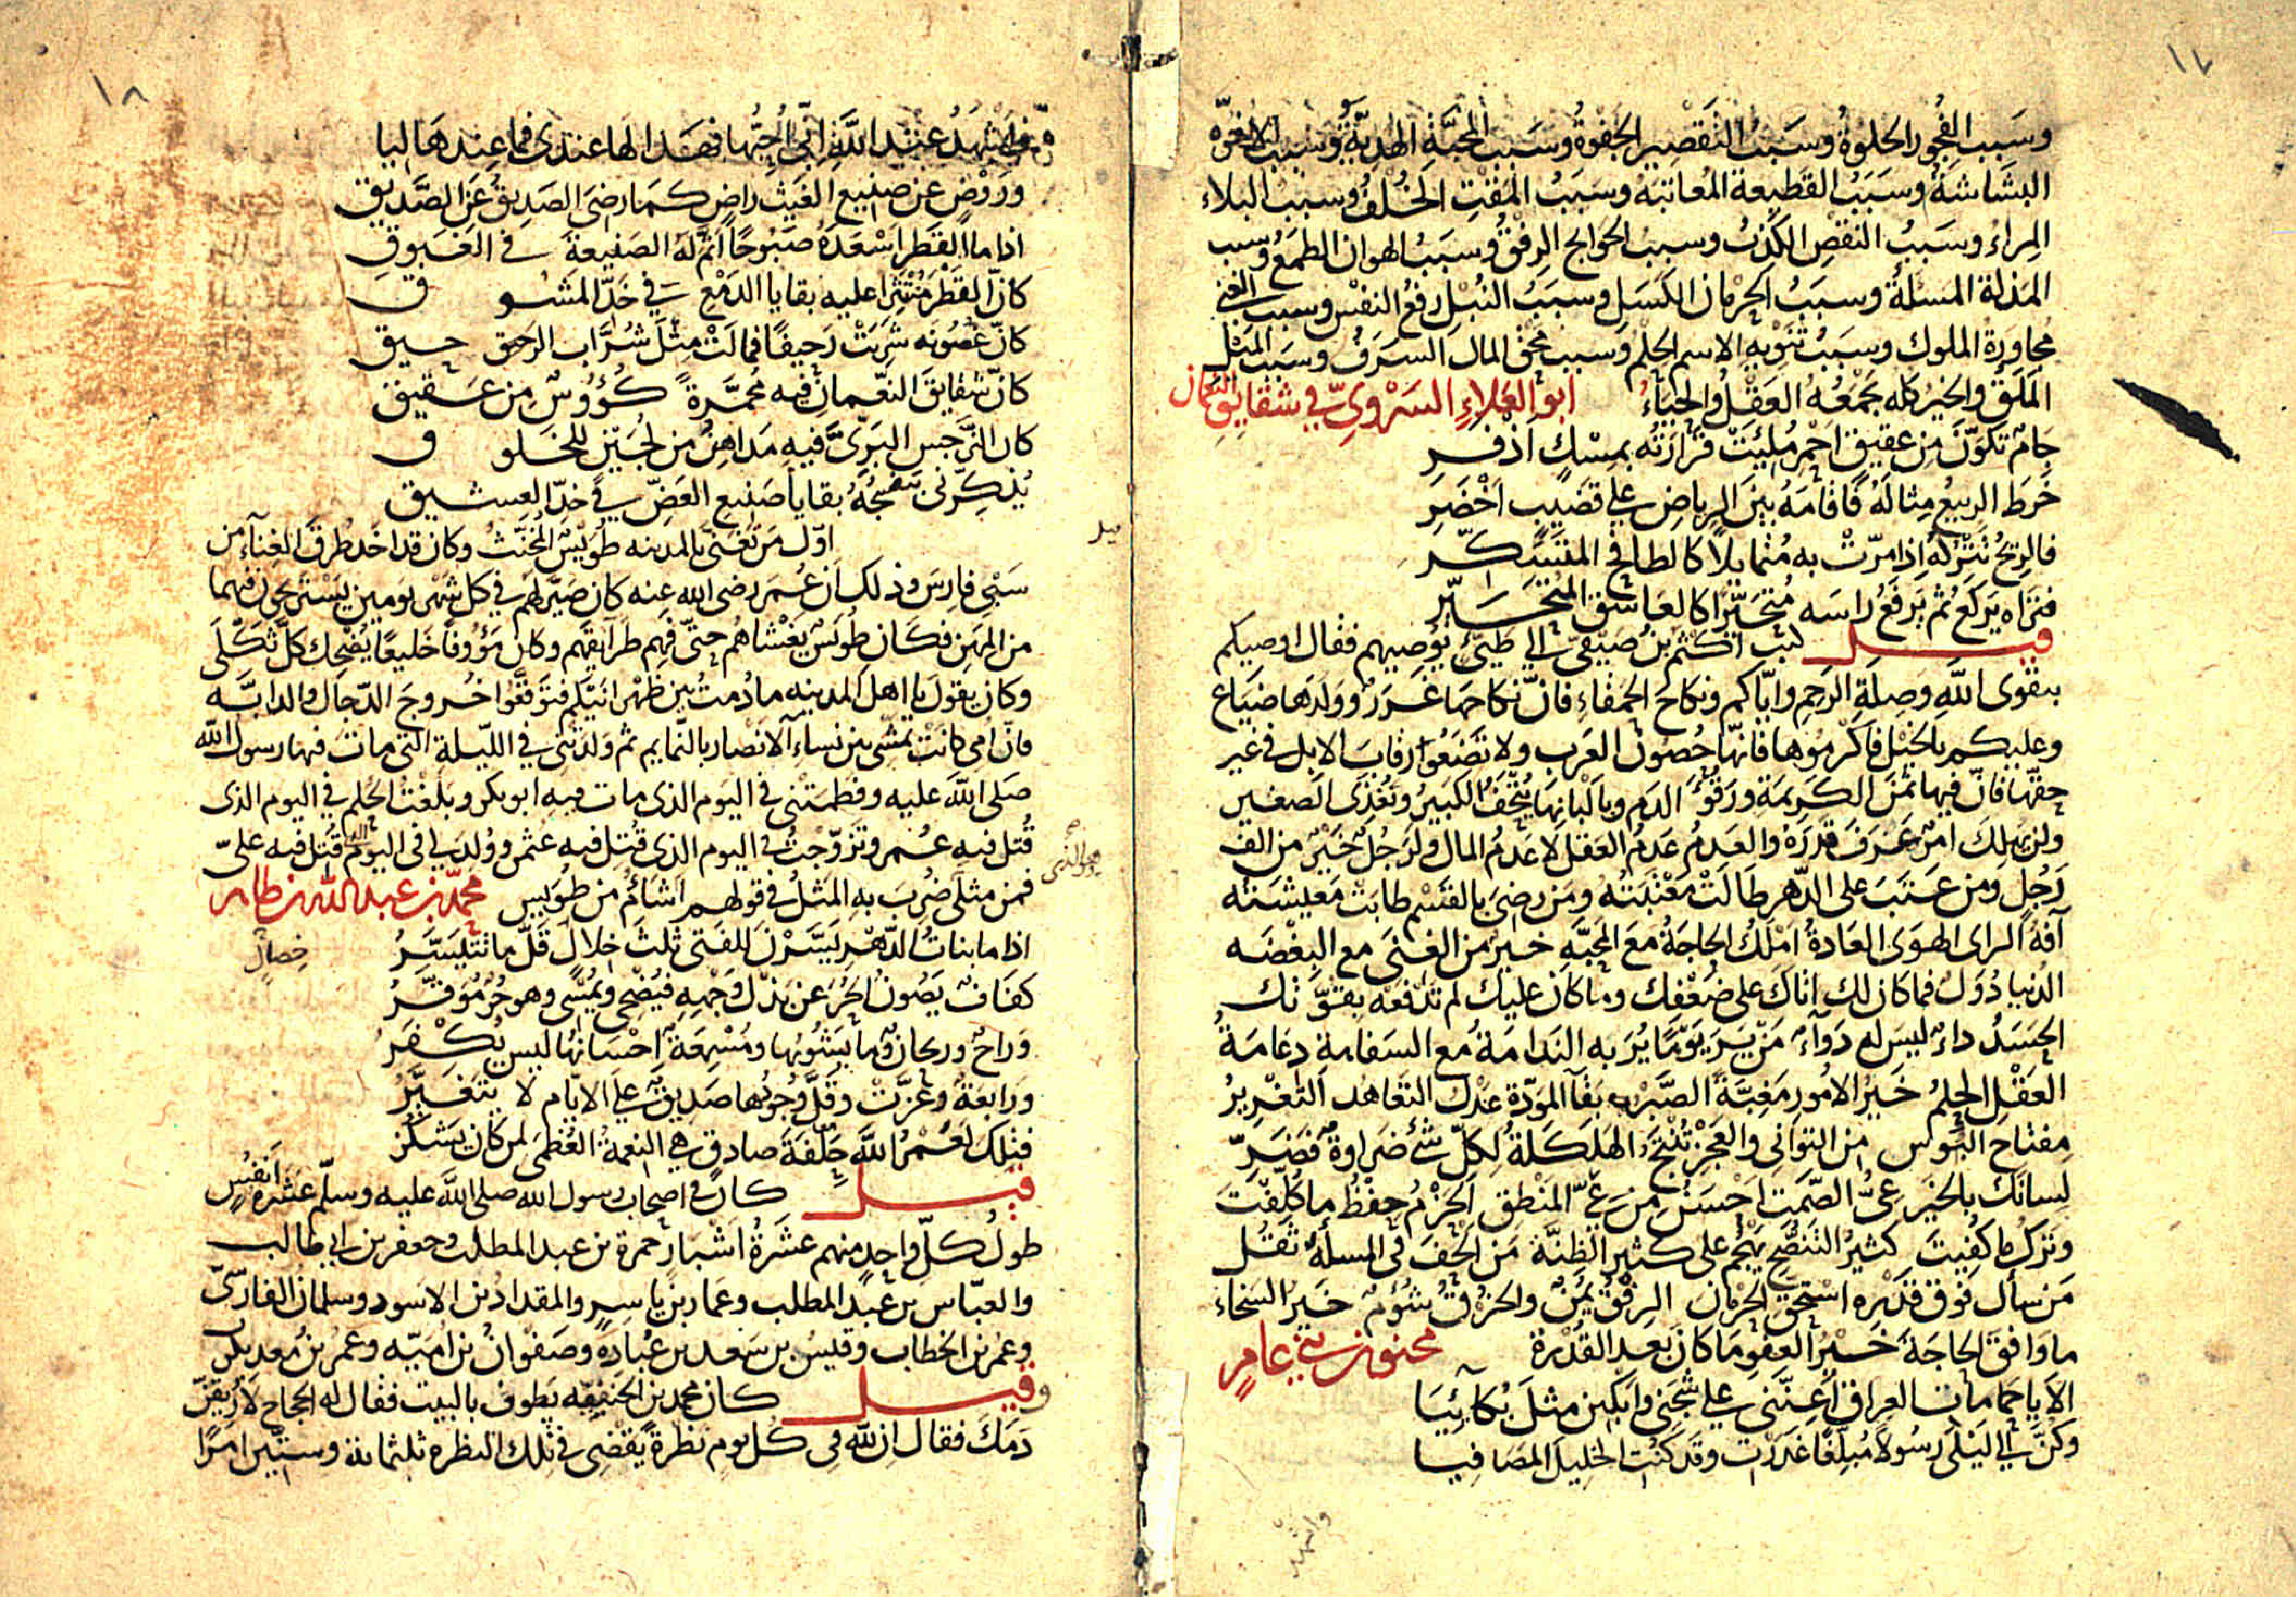 ١٧
وسَبب الفُجور الخلوةُ وسَبَبُ التقصِير الجَفوةُ وسَبب المحبَّةِ الهديَّةُ وسبب الاخوّه
البشاشةُ وسَبَبُ القطيعة المعاتبة وسَبَبُ المقتِ الخُلفُ وسبب البلاء
المِراء وسَببُ النقصِ الكذبُ وسببُ الحوايج الرِفقُ وسَببُ الهوان الطمعُ وسبب
المذلة المسئلةُ وسبَبُ الحِرمان الكسَل وسبَبُ النُبْل رفعُ النفس وسبب الغنى
مُجاورة الملوك وسبَبُ تنويه الاسم الحِلم وسبب محق المال السرَفُ وسبَب المَيْل
المَلَقُ والخير كله يجمعُهُ العَقْلُ والحَيَاءُ ابو العَلاءِ السَرْويّ في شقايق النعمان
جَامٌ تكوّنَ مِن عقيقٍ احمرٍ مُلِئَتْ قرارتُه بمِسْكٍ اذْفَرِ
خَرَط الربيعُ مِثالَهُ فَاقامَهُ بينَ الرياضِ علي قضيبٍ اخْضَرِ
فالريحُ تتركُهُ إذا مرّتْ به مُتمايلاً كالطافح المُتسَكّرِ
فتراه يَركعُ ثم يَرفعُ راسَه مُتحيّرًا كالعاشق المتحيّرِ
قيل كتبَ اكثمُ بنُ صيفيّ الى طيّئ يُوصِيهم فقال اوصيكم
بتقوى اللهِ وصِلةِ الرحِمِ وايّاكم ونكاحَ الحمقاءِ فانّ نكاحَها غَرَرٌ ووَلدَها ضَيَاع
وعليكم بالخيْل فاكرموها فانّها حُصونُ العَرب ولا تَضعُوا رقابَ الابل في غير
حقّها فانّ فيها ثمنَ الكريمَةِ ورَقُوْءَ الدمِ وبالبانها يُتْحَفُ الكبيرُ ويُغْذَى الصغير
ولن يهلِكَ امرؤٌ عَرَف قدْرَهُ والعدمُ عَدمُ العقل لا عَدمُ المال ولرجُلٌ خيرٌ من الف
رَجُلٍ ومن عَتَبَ على الدهر طالَتْ مَعْتبَتُهُ ومَن رضِىَ بالقَسْمِ طابَتْ مَعيشتُه
آفةُ الراى الهوَى العادةُ امْلَكُ الحاجَةُ معَ المحبّه خيرٌ من الغِنَى مع البِغْضَه
الدُنيا دُوَلٌ فما كان لك اتاكَ على ضَعْفِك وما كان عليك لم تدْفعْه بقوّتك
الحسَدُ داءٌ ليسَ له دَوآءٌ مَن يَرَ يَومًا يُرَ به الندامَةُ مع السفاهة دعامَةُ
العَقْل الحِلمُ خَيرُ الامُور مَغِبّةً الصَبْرُ بقآءُ المَوَدّة عَدْلُ التعاهُد التغْريرُ
مِفتاح البُوس من التوانى والعَجْز نُتِجَت الهلَكَةُ لِكلّ شئ ضراوةٌ فضَرِّ
لِسانَك بالخير عِىُّ الصَمْت احْسَنُ من عِيّ المَنْطِق الحَزْمُ حِفْظُ ما كُلّفْتَ
وتركُ ما كُفِيتَ كثيرُ التنصُّح يَهْجُم على كثير الظِنّة مَن الْحَفَ فى المسألة ثَقُل
مَن سألَ فوق قدْرِه استحقَّ الحرْمانَ الرِفْقُ يُمْنٌ والخُرْقُ شُؤمٌ خَيرُ السَخاء
ما وَافق الحاجَة خَيرُ العفوِ ما كان بَعد القُدْرة مجنون بني عامرٍ
الا يا حَمامات العِراق اَعِنّنى علي شَجَنِى وابكين مثلَ بُكائِيَا
وكنّ الى ليلى رسُولاً مُبلِّغًا غدرت وقد كنتِ الخليلَ المصَافيا
واشهد
١٨
فاشهَدُ عندَ اللهِ انّى اُحِبُّها فهَذا لها عندى فما عِندهَا ليا
ورَوْضٍ عن صنيع الغَيثِ راضٍ كمَا رضِىَ الصَدِيقُ عَنِ الصَّديقِ
اذا ما القَطر اَسْعَدَهُ صَبُوحًا اتمَّ لهُ الصَنيعةَ في الغَبوقِ
كانّ القَطْر مُنْتَثرًا عليه بقايا الدمْعِ في خدّ المَشُوقِ
كانّ غُصُونه شرِبَتْ رَحيقًا فمالَتْ مِثلَ شُرّابِ الرحيق
كانّ شقايقَ النعمانِ فيه مُحمَّرةً كُؤوسٌ مِن عَقيقِ
كان النرجسَ البَرِّىَّ فيهِ مَداهِنُ من لُجَيْنٍ للخلوق
يُذكِّرنى بنفسجُهُ بقايا صَنيع العَضّ في خدّ العشيق
اوّل مَن تغَنّى بالمدينه طُوَيسٌ المُخنَّث وكان قد اخَد طُرقَ الغِنآءِ من
سَبْى فارسَ وذلك اَنّ عُمَر رضى الله عنه كان صَيّر لهم في كل شهر يومين يستريحون فيهما
من المِهَن فكان طُوَيسٌ يَغْشاهُم حتّى فَهِم طرآيقَهم وكان مَؤوفاً خليعًا يُضحِك كلّ ثكلَى
وكان يقول يا اهلَ المدينه ما دُمتُ بين ظهرانَيْكم فتوقّعُوا خُروجَ الدجّال والدابَّه
فانّ امى كانت تمشى بين نساءِ الانصار بالنمايم ثم ولدتنى في الليلة التى مات فيها رسول الله
صَلى اللهُ عليه وفطمَتنى في اليوم الذى مات فيه ابو بكر وبلَغتُ الحُلم في اليوم الذى
قُتل فيه عُمر وتزوّجتُ في اليوم الذى قُتِل فيه عثمن ووُلِد لي فى اليوم الذى قُتل فيه علىّ
فمن مثلى ضُربَ بهِ المثلُ في قولهم اَشأمُ من طُويس محمّد بن عبد الله بن طاهر
اذا ما بناتُ الدّهْرِ يَسَّرْنَ للفتى ثلثَ خِلالٍ قلّ ما تتيَسَّرُ خِصالٍ
كفافٌ يَصُون الحُرَّ عن بذلِ وَجْهِهِ فيُضْحِى ويُمْسِى وهو حُرٌّ مُوَفّرُ
وَراحٌ وريحانٌ وما يَشُوبُها ومُسْمِعَةٌ احْسانُها ليس يُكْفَرُ
ورابعَةٌ وعَزّتْ وقلّ وُجُودُها صَديقٌ علي الايّام لا يتَغَيَّرُ
فتِلك لَعَمْرُ اللهِ حَلفَةَ صادقٍ هي النعمةُ العُظمَى لمن كان يَشكُرُ
قيل كان في اصحاب رسول الله صلى الله عليه وسلّم عشرة انفسٍ
طولُ كلّ واحدٍ منهم عشرَةُ اشبار حمزة بن عبد المطلب وجعفر بن ابي طالب
والعبّاس بن عبد المطلب وعمار بن ياسِرٍ والمقدادُ بن الاسود وسلمان الفارسىّ
وعمر بن الخطاب وقيسُ بن سَعد بن عُبادة وصَفْوانُ بن اُمَيّه وعمر بن معديكرب
وقيل كان محمد بن الحنفيّه يَطوف بالبيت فقال له الحجاج لاُريقنّ
دَمَكَ فقال ان لله فى كُل يومٍ نظرةً يَقضِى في تلك النظرة ثلثمائة وستين امرًا